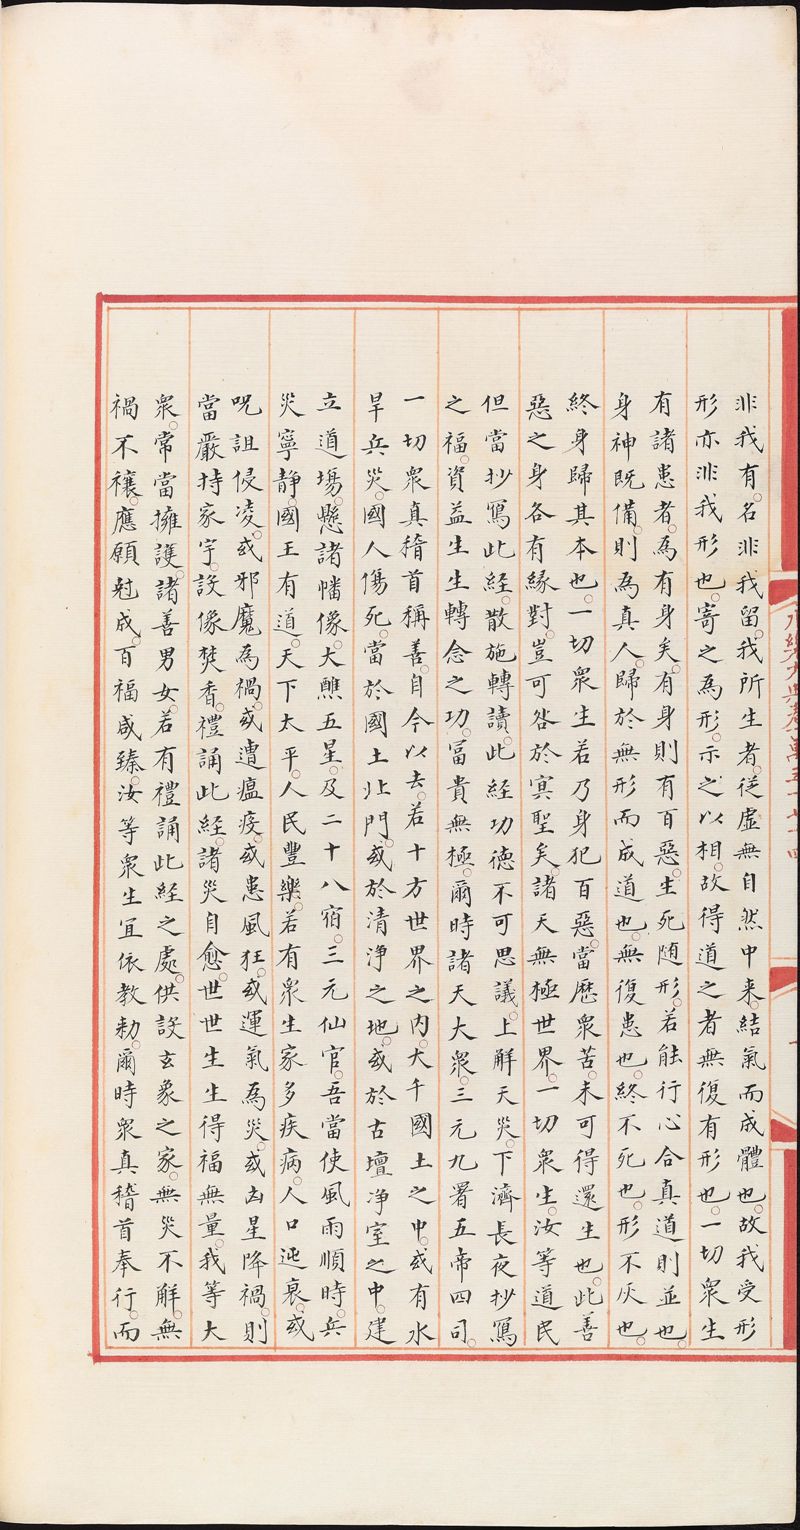 非我有。名非我留。我所生者。從虛無自然中来。結氣而成體也。故我受形
形亦非我形也。寄之為形。示之以相。故得道之者無復有形也。一切衆生
有諸患者。為有身矣。有身則有百惡。生死随形。若能行心合真道則並也。
身神既備。則為真人。歸於無形而成道也。無復患也。終不死也。形不灰也。
終身歸其本也。一切衆生若乃身犯百惡。當歷衆苦。未可得還生也。此善
惡之身各有緣對。豈可咎於冥聖矣。諸天無極世界。一切衆生。汝等道民
但當抄寫此經。散施轉讀。此經功德不可思議。上解天災。下濟長夜抄寫
之福。資益生生轉念之功。冨貴無極。爾時諸天大衆。三元九署五帝四司。
一切衆真稽首稱善。自今以去。若十方世界之內。大千國土之中。或有水
旱兵災。國人傷死。當於國土北門。或於清淨之地。或於古壇净室之中。建
立道場。懸諸幡像。大醮五星。及二十八宿。三元仙官。吾當使風雨順時。兵
災寧静。國王有道。天下太平。人民豐樂。若有衆生家多疾病。人口迍衰。或
呪詛侵凌。或邪魔為禍。或遭瘟疫。或患風狂。或運氣為災。或凶星降禍。則
當嚴持家宇。設像焚香。禮誦此經。諸災自愈。世世生生得福無量。我等大
衆。常當擁護。諸善男女。若有禮誦此經之處。供設玄象之家。無災不解。無
禍不禳。應願尅成。百福咸臻。汝等衆生宜依教勑。爾時衆真稽首奉行。而